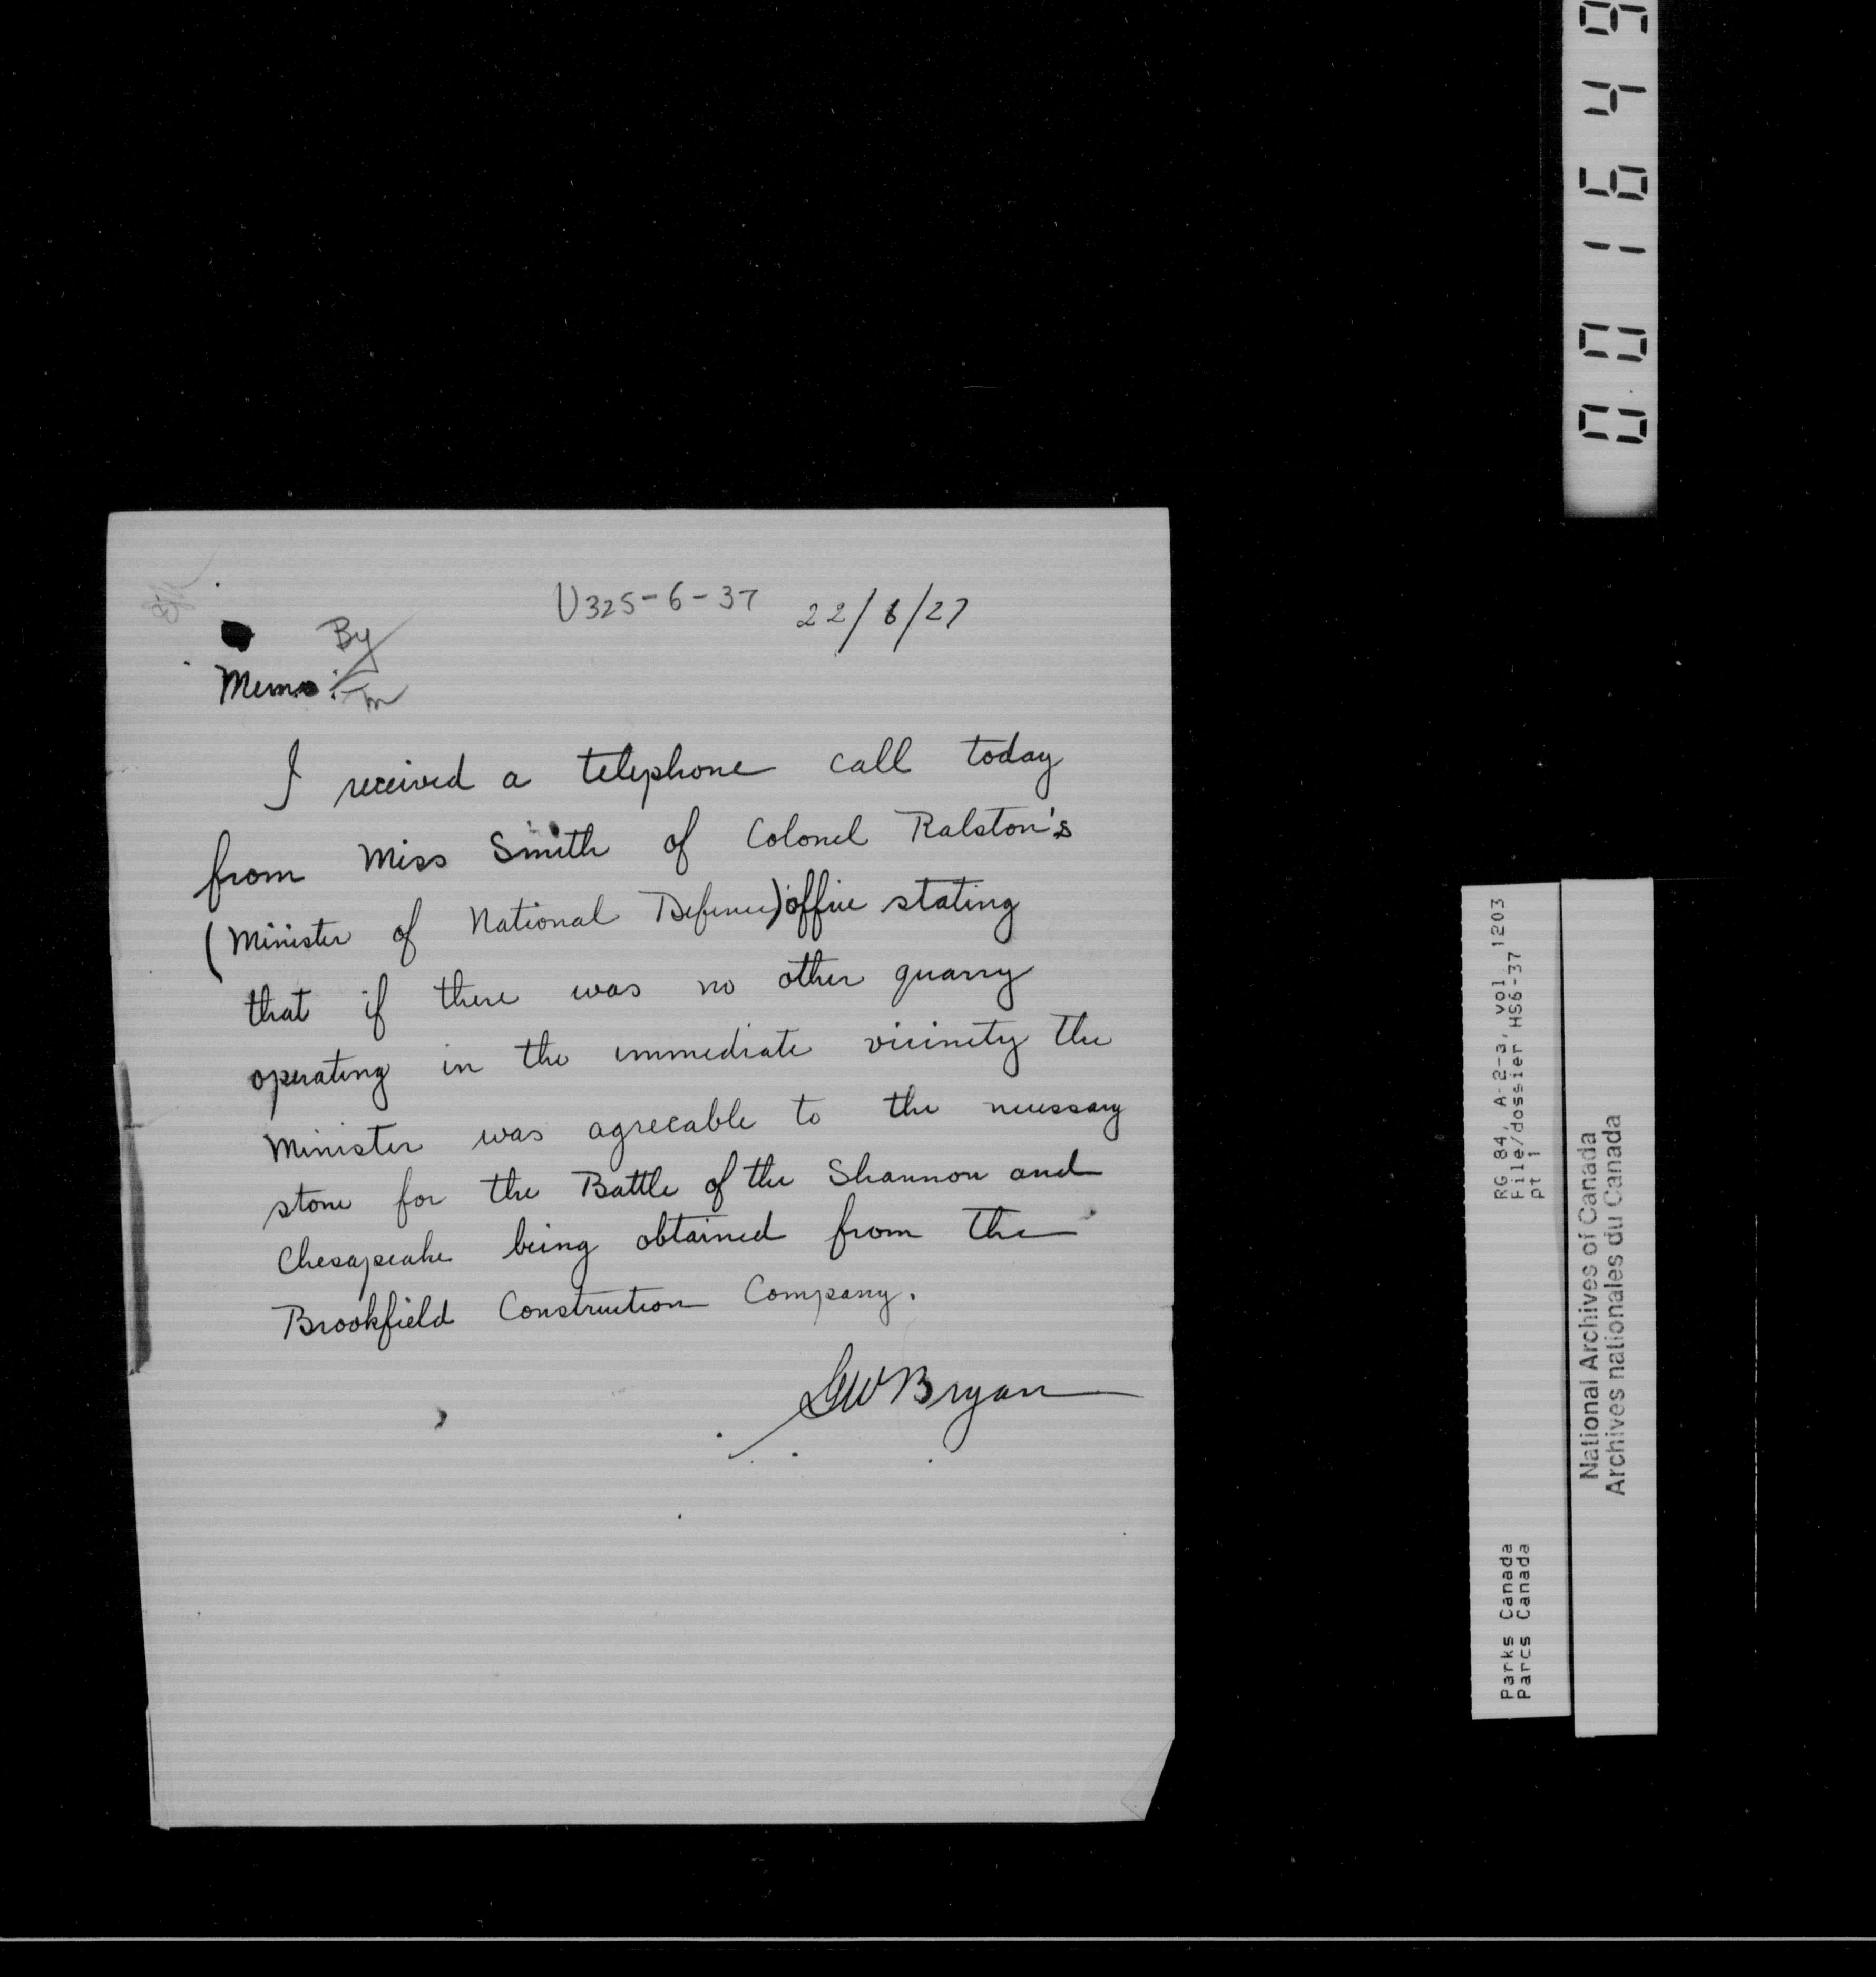 U325-6-37 22/6/27
By
Memo:
I received a telephone call today
from Miss Smith of Colonel Ralston's
(Minister of National Defence) office stating
that if there was no other quarry
operating in the immediate vicinity the
Minister was agreeable to the necessary
stone for the Battle of the Shannon and
Chesapeake being obtained from the
Brookfield Construction Company.
Bryan
001649
RG 84, A-2-a, vol 1203
File/dossier HS6-37
pt 1
Parks Canada
Parcs Canada
National Archives of Canada
Archives nationales du Canada